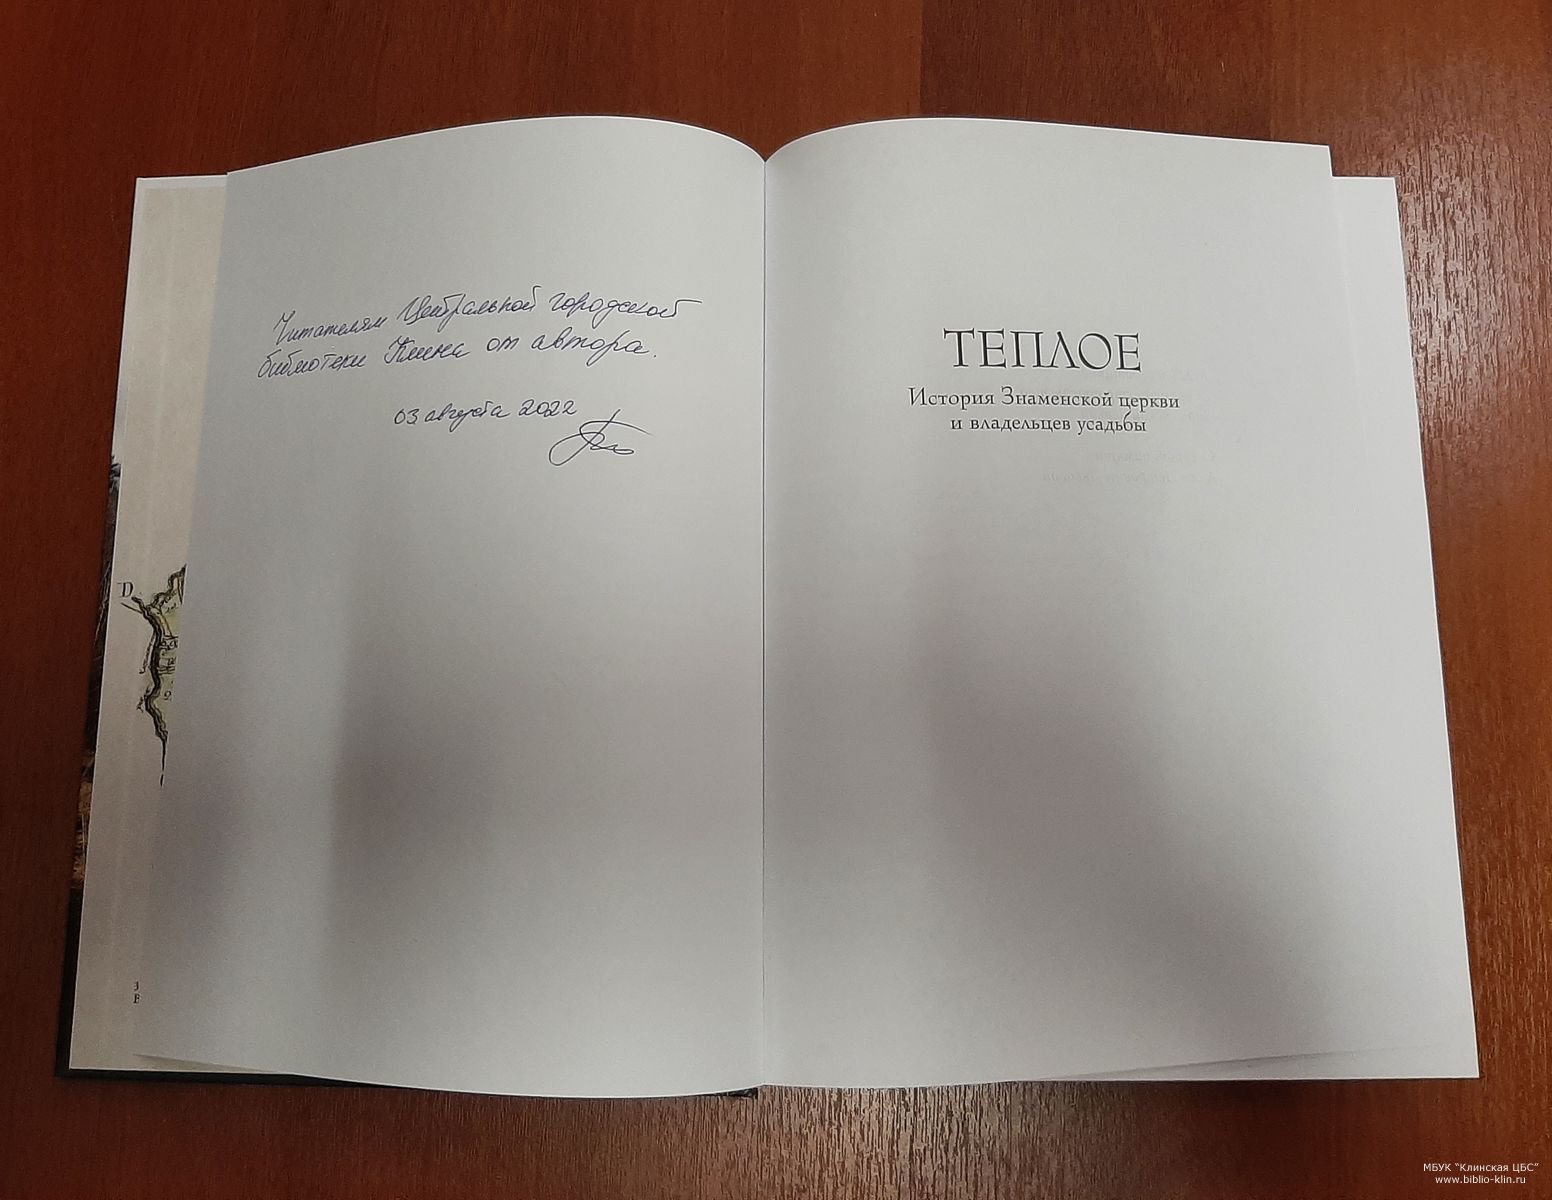 Читателям Центральной городской
библиотеки Клина от автора.
03 августа 2022
ТЕПЛОЕ
История Знаменской церкви
и владельцев усадьбы
D
З
В
МБУК "Клинская ЦБС"
www.biblio-klin.ru